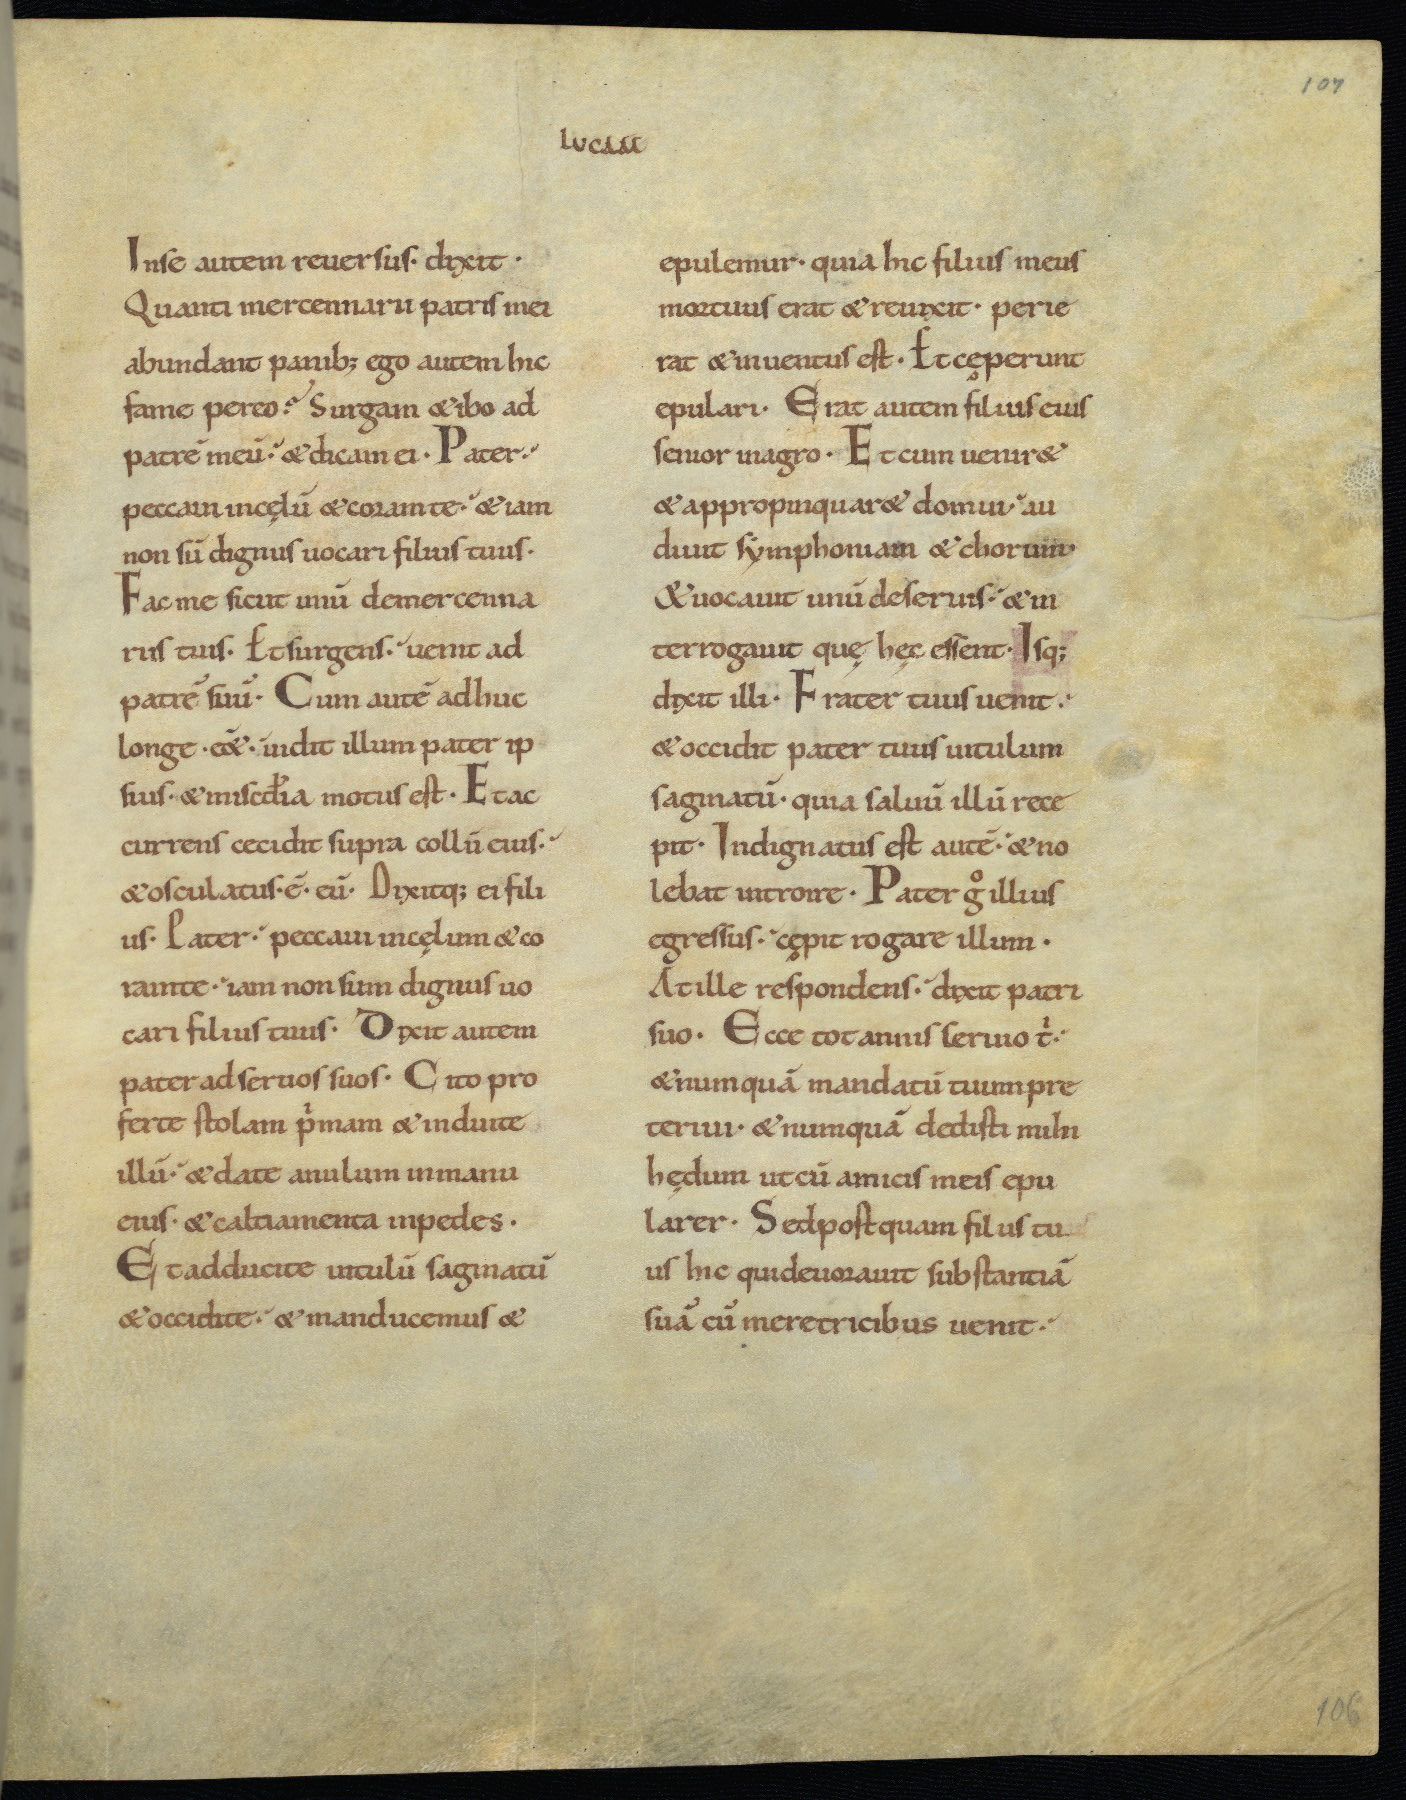 107
LUCAM
Inse autem reuersus· dixit·
Quanti mercennarii patris mei
abundant panib; ego autem hic
fame pereo? Surgam & ibo ad
patrē meū· & dicam ei· Pater·
peccaui incęlū & coram te· & iam
non sū dignus uocari filius tuus·
Fac me sicut unū demercenna
riis tuis· Et surgens· uenit ad
patrē suū· Cum autē adhuc
longe ·eēt· uidit illum pater ip
sius· & misc̄dia motus est· Et ac
currens cecidit supra collū eius·
& osculatus·ē· eū· Dixitq; ei fili
us· Pater· peccaui incęlum & co
ramte· iam non sum dignus uo
cari filius tuus· Dixit autem
pater ad seruos suos· Cito pro
ferte stolam p'mam & induite
illū· & date anulum inmanu
eius· & caltiamenta inpedes·
Et adducite uitulū saginatū
& occidite· & manducemus &
epulemur· quia hic filius meus
mortuus erat & reuixit· perie
rat & inuentus est· Et cęperunt
epulari· Erat autem filius eius
senior inagro· Et cum uenir&
& appropinquar& domui· au
diuit sẏmphoniam & chorum·
& uocauit unū deseruis· & in
terrogauit quę hęc essent· Isq;
dixit illi· Frater tuus uenit·
& occidit pater tuus uitulum
saginatū· quia saluū illū rece
pit· Indignatus est autē· & no
lebat introire· Pater gͦ illius
egressus· cępit rogare illum·
At ille respondens· dixit patri
suo· Ecce tot annis seruio t'·
& numquā mandatū tuum pre
teriui· & numquā dedisti mihi
hędum ut cū amicis meis epu
larer· Sed postquam filius tu
us hic quideuorauit substantiā
suā cū meretricibus uenit·
106